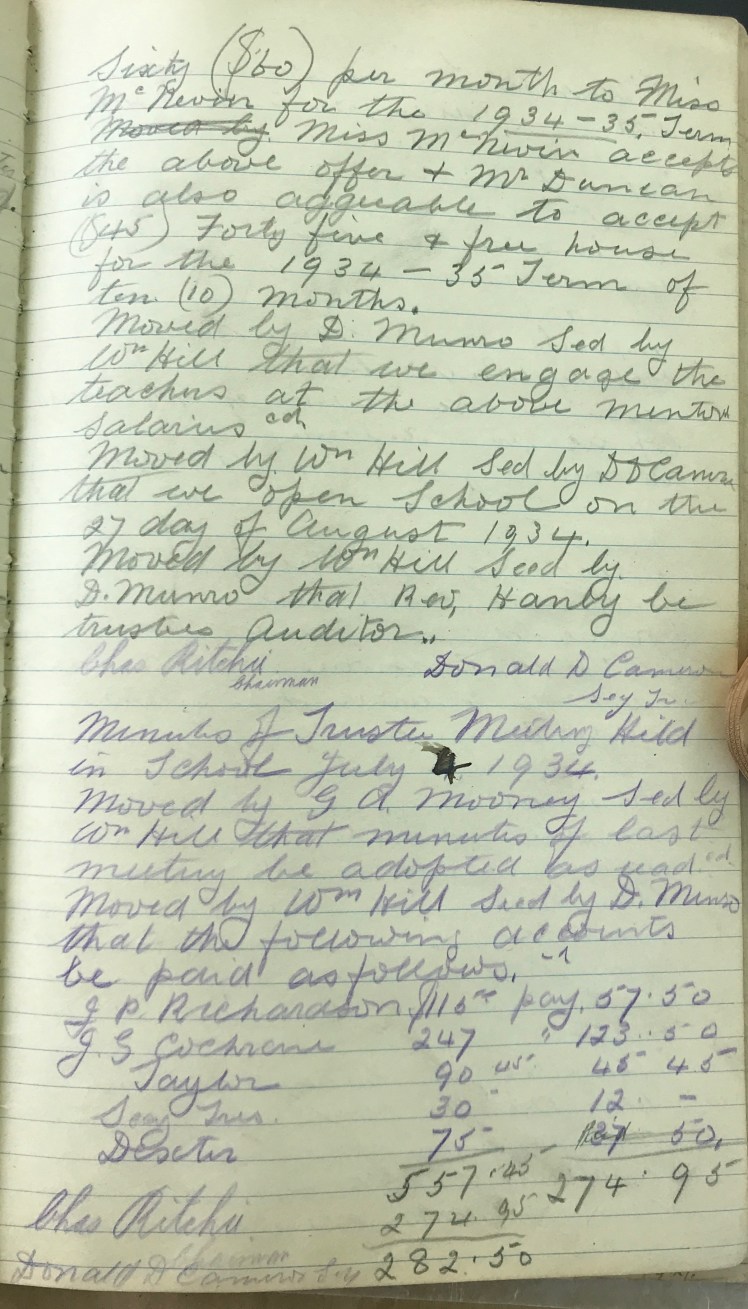 Sixty ($60) per month to Miss
McNevin for the 1934-35 Term
Moved by Miss McNevin accepts
the above offer + Mr Duncan
is also aggueable to accept
($45) Forty five & free house
for the 1934-35 Term of
ten (10) months.
Moved by D. Munro Sed by
Wm Hill that we engage the
teachers at the above mention
salaries cd
Moved by Wm Hill Sed by D D Camern
that we open School on the
27 day of August 1934.
Moved by Wm Hill Sed by
D. Munro that Rev, Hanby be
trustees Auditor..
Chas Ritchie Donald D Cameron
Chairman Secy Tr.
Minutes of Trustee Meeting Held
in School July 4 1934.
Moved by G A Mooney Sed by
Wm Hill that minutes of last
meeting be adopted as read cd
Moved by Wm Hill Secd by D. Munro
that the following accounts
be paid as follows.
J P. Richardson $115 pay. 57.50
J. G Cochrane 247 " 123.50
Taylor 90 45 45 45
Secy Tres. 30 12 -
Dexter 75 37 50.
557.45 274.95
Chas Ritchie 274.95
Chairman
Donald D Cameron Sey 282.50